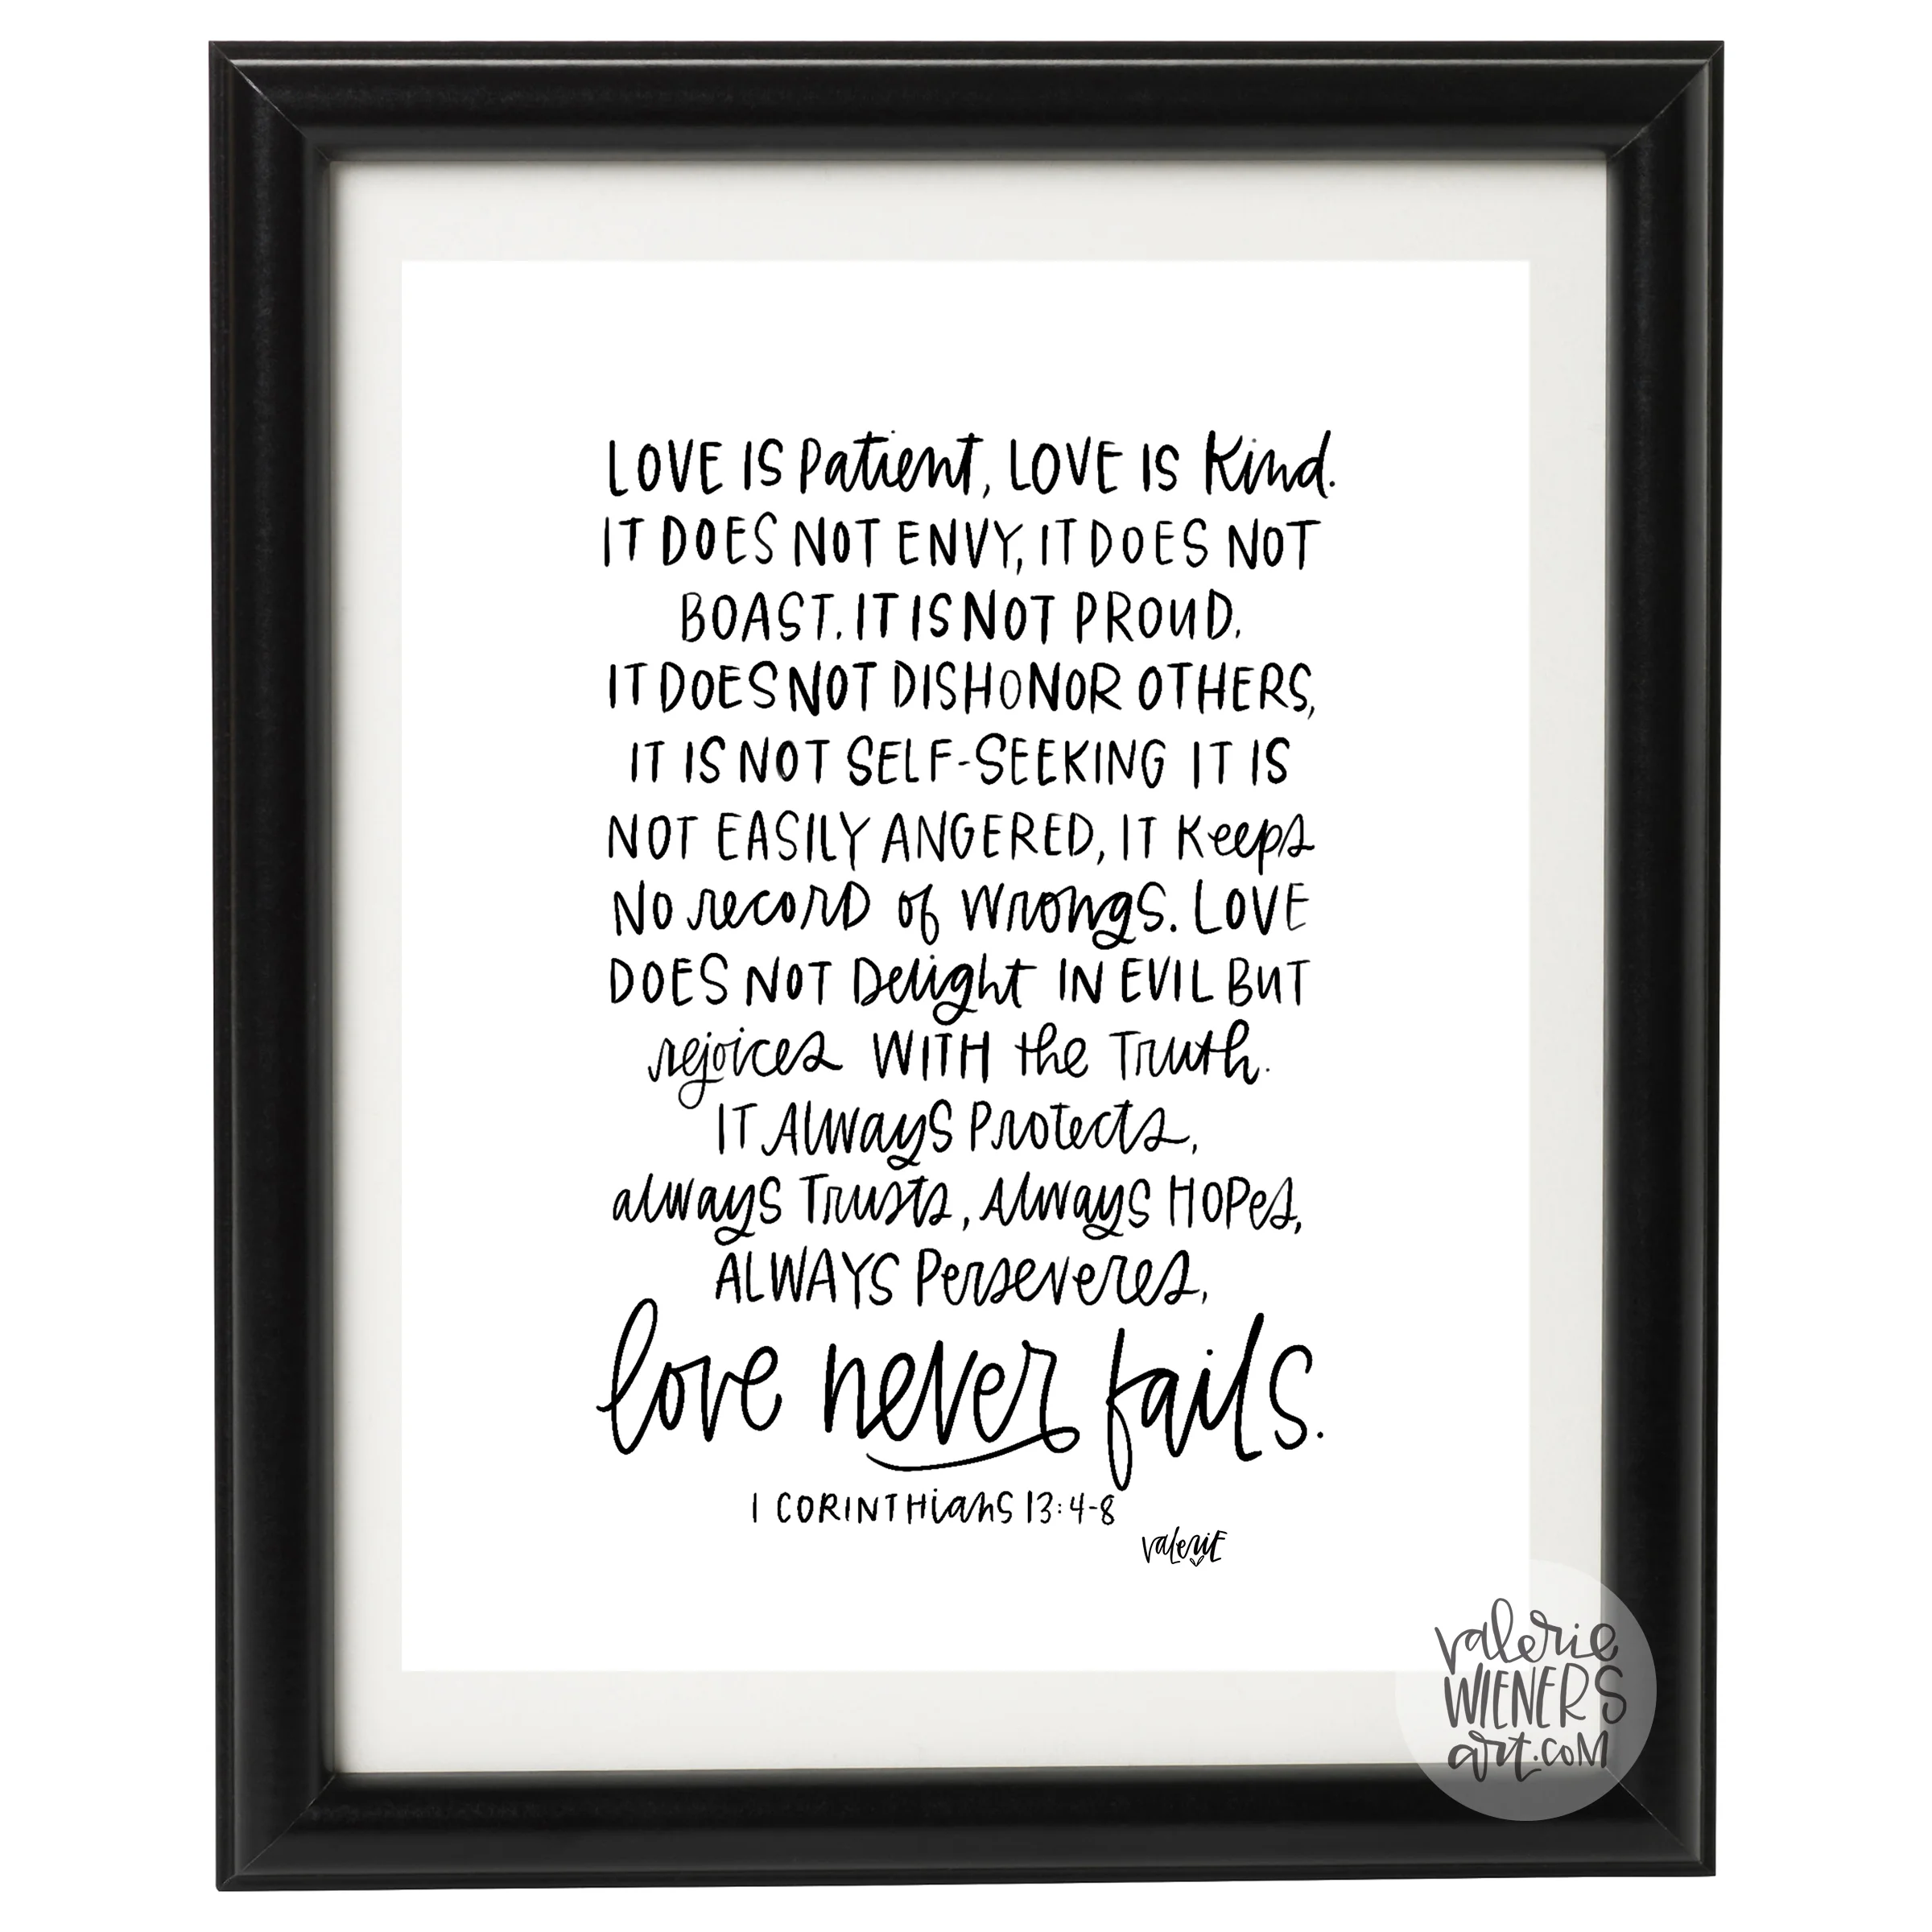 LOVE IS Patient, LOVE IS Kind.
IT DOES NOT ENVY, IT DOES NOT
BOAST. IT IS NOT PROUD.
IT DOES NOT DISHONOR OTHERS,
IT IS NOT SELF-SEEKING IT IS
NOT EASILY ANGERED, IT Keeps
NO record of Wrongs. LOVE
DOES NOT Delight IN EVIL BUT
rejoices WITH the Truth.
IT Always Protects,
always Trusts, Always HOPes,
ALWAYS Perseveres,
love never fails.
1 CORINTHians 13:4-8
valeriE
valerie
WIENERS
art.com